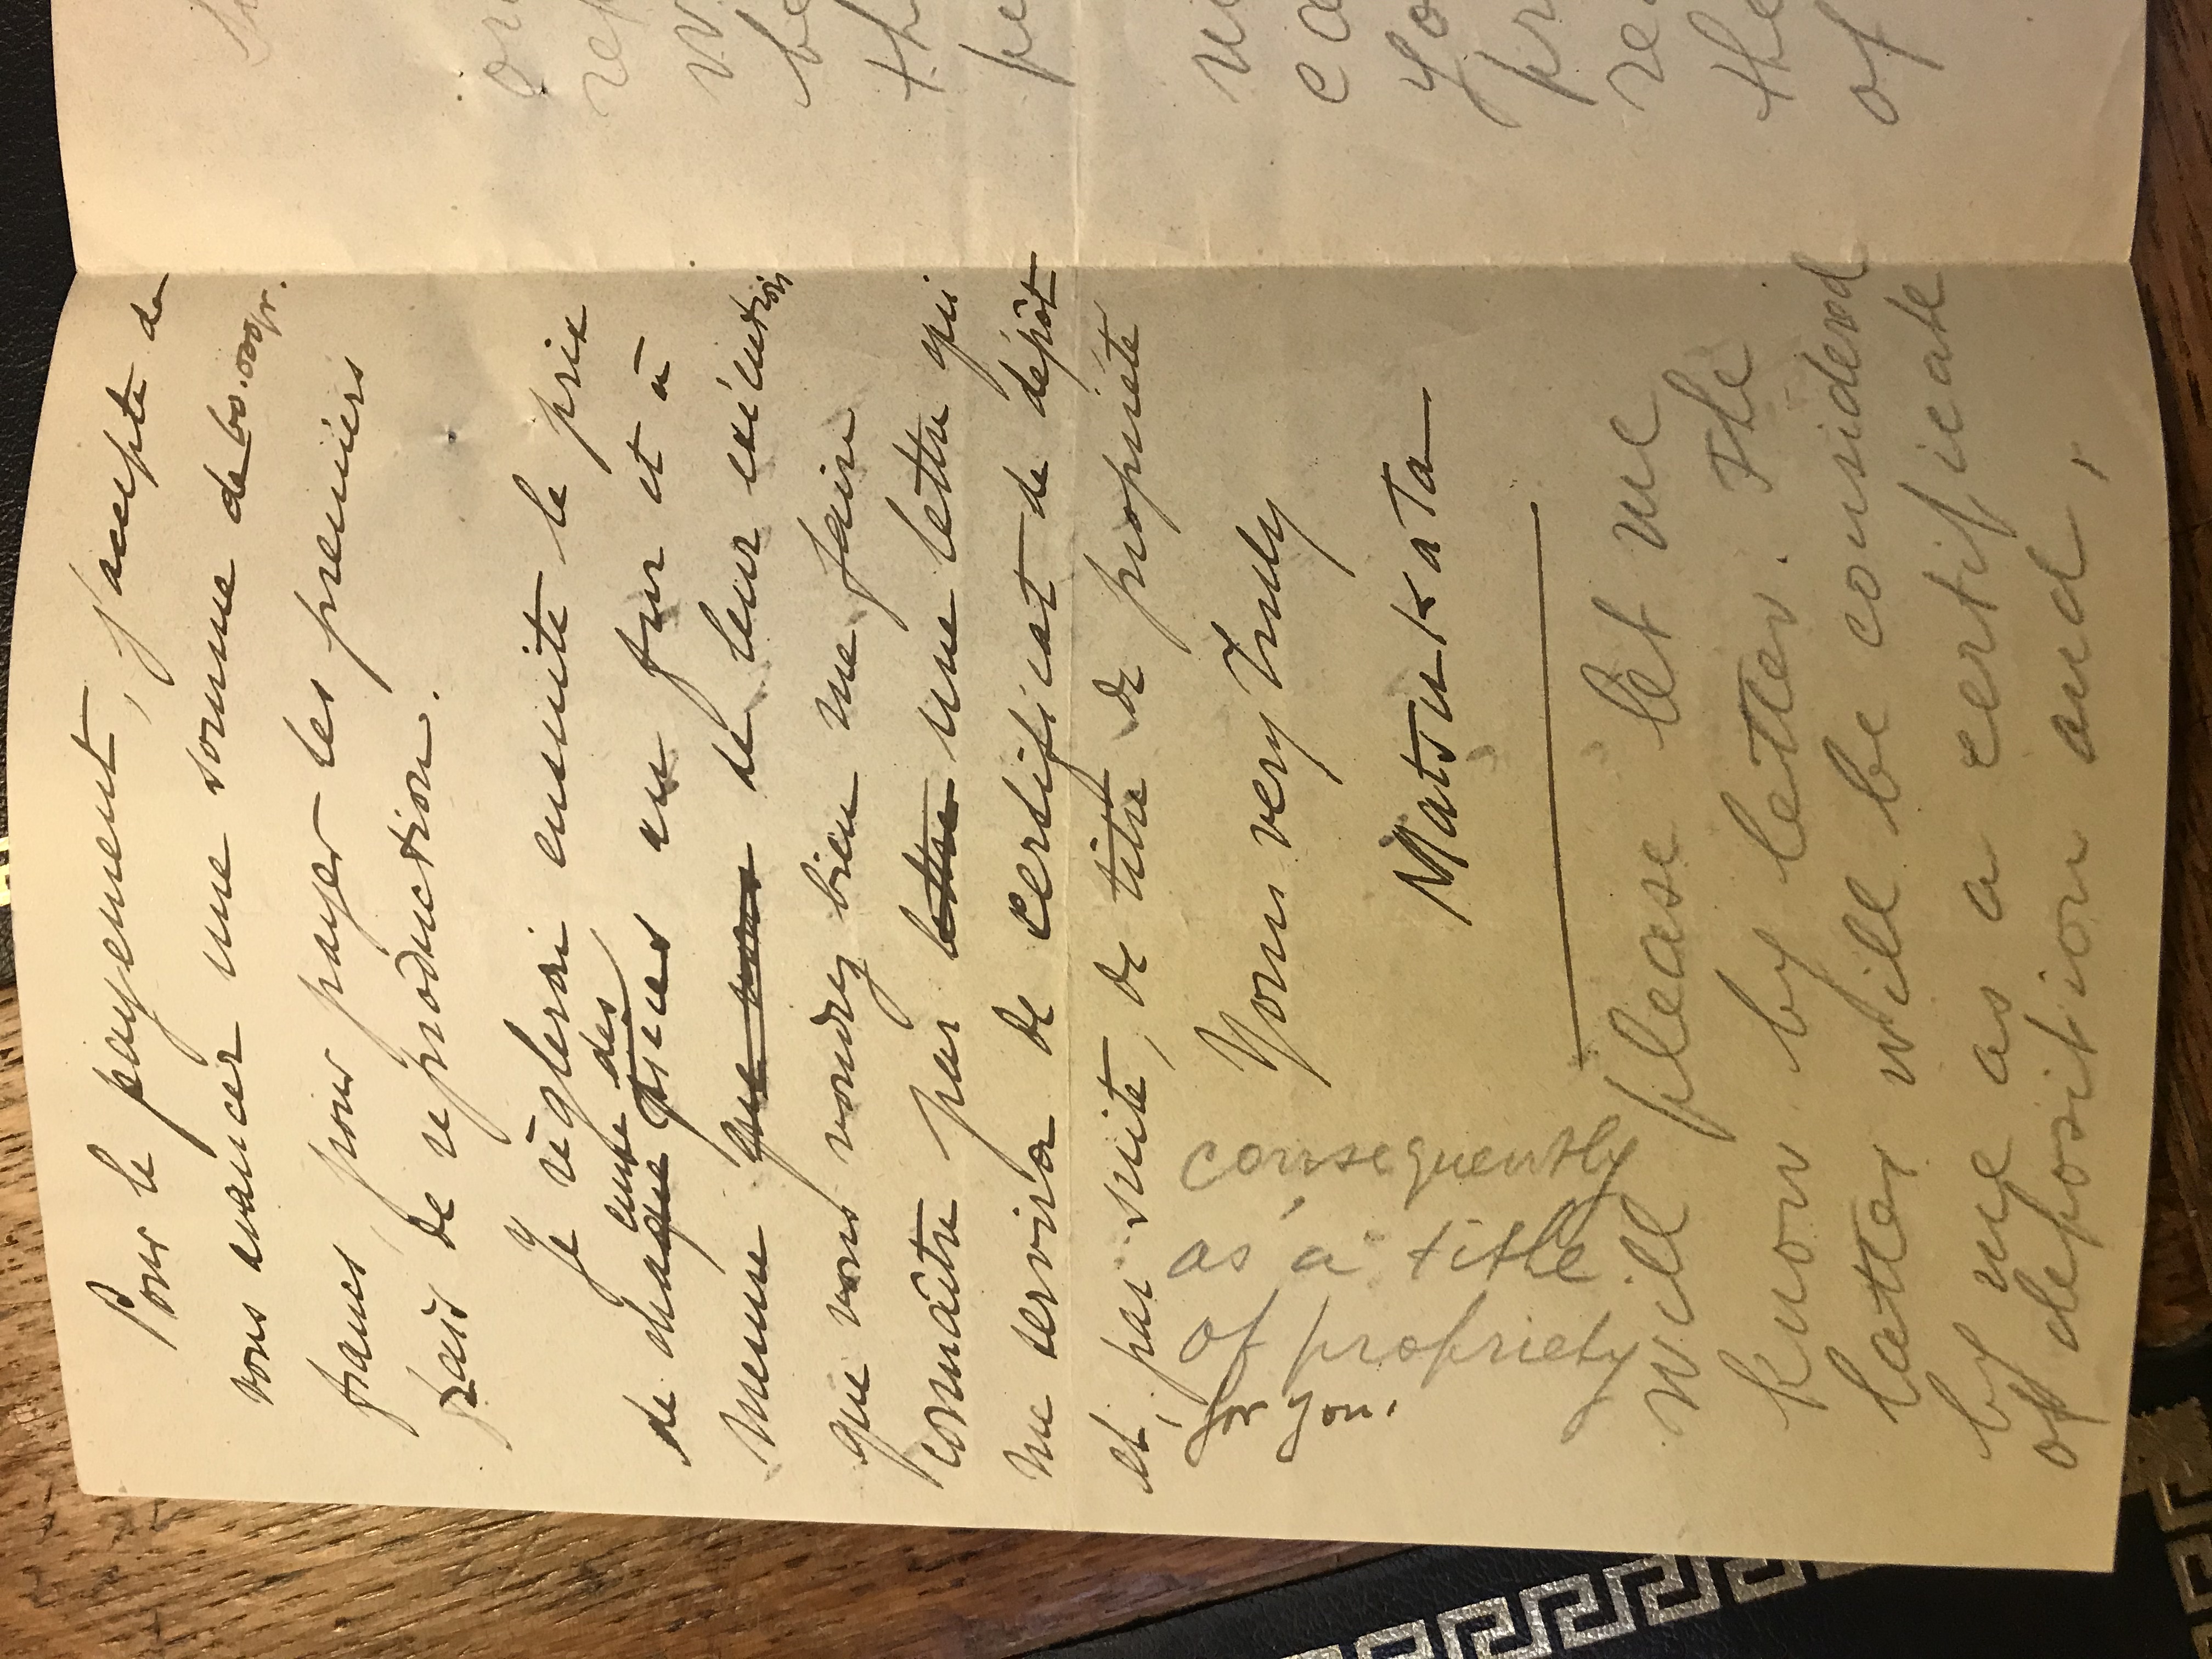 Pour le payement, j'accepte de
vous avancer une somme de 60.000 fr.
francs pour payer les premiers
frais de reproduction.
Je règlerai ensuite le prix
des
de chaque pièces au fur et à
mesure que vous de leur exécution
que vous voudrez bien me faire
connaître par lettre une lettre qui
me servira de certificat de dépôt
et, par suite, de titre de propriété
Yours very Truly
Matsukata
please let me
know by letter. The
latter will be considered
by me as a certificate
of deposition and,
consequently
will
as a title
of propriety
for you.
or
w
be
th
pe
w
ca
yo
pr
re
the
of